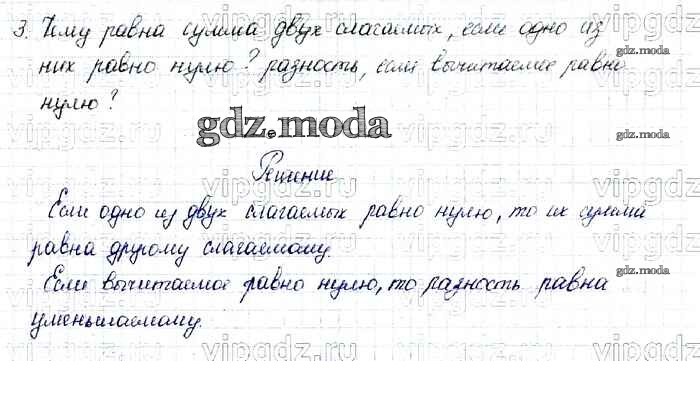 3. Чему равна сумма двух слагаемых, если одно из
них равно нулю? разность, если вычитаемое равно
нулю?
gdz.moda
Решение
Если одно из двух слагаемых равно нулю, то их сумма
равна другому слагаемому.
Если вычитаемое равно нулю, то разность равна
уменьшаемому.
gdz.moda
gdz.moda
gdz.moda
gdz.moda
vipgdz.ru
vipgdz.ru
vipgdz.ru
vipgdz.ru